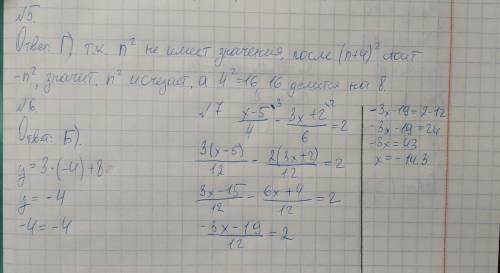 №5
Ответ: Г), т.к. n² не имеет значения, после (n+4)² стоит
-n², значит, n² исчезает, а 4²=16, 16 делится на 8.
№6.
Ответ: Б).
y=3·(-4)+8
y=-4
-4=-4
№7 x-5/4 \3 - 3x+2/6 \2 =2
3(x-5)/12 - 2(3x+2)/12 =2
3x-15/12 - 6x+4/12 =2
-3x-19/12 =2
-3x-19=2·12
-3x-19=24
-3x=43
x=-14.3